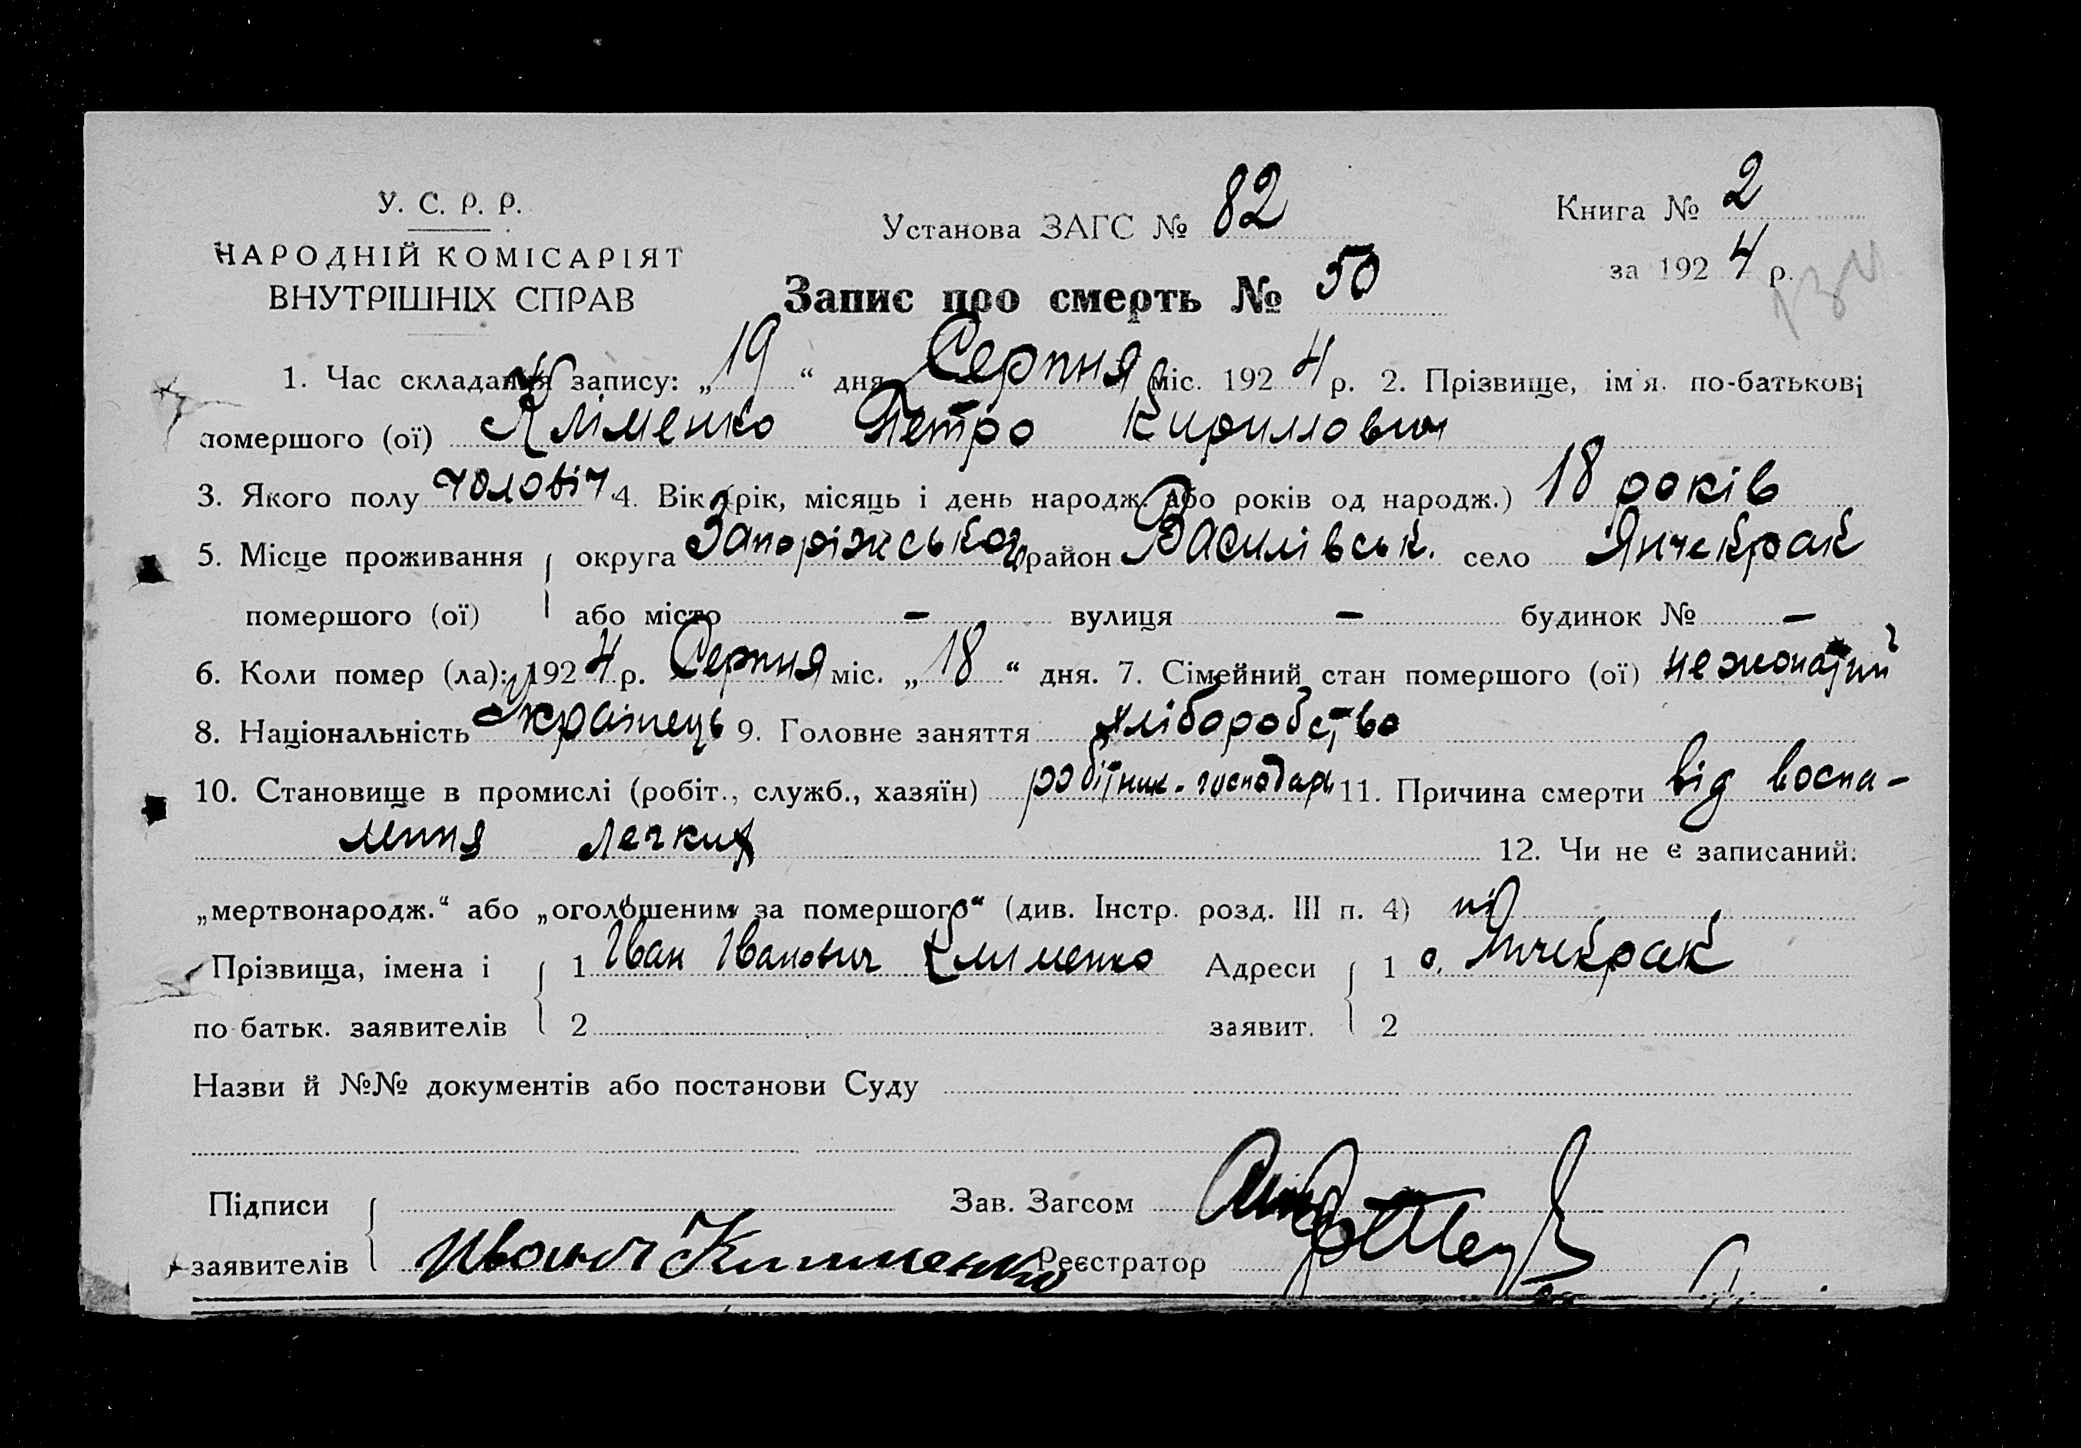 У. С. Р. Р.
НАРОДНІЙ КОМІСАРІЯТ
ВНУТРІШНІХ СПРАВ
Установа ЗАГС № 82
Книга № 2
за 1924 р.
Запис про смерть № 50
1. Час складання запису: „19“ дня Серпня міс. 1924 р. 2. Прізвище, ім'я. по-батькові
помершого (ої) Кліменко Петро Кириллович
3. Якого полу чоловіч. 4. Вік (рік, місяць і день народж. або років од народж.) 18 років
5. Місце проживання округа Запоріжська район Василівськ. село Янчекрак
помершого (ої) або місто – вулиця – будинок № –
6. Коли помер (ла): 1924 р. Серпня міс. „18“ дня. 7. Сімейний стан помершого (ої) нежонатий
8. Національність Українець 9. Головне заняття хліборобство
10. Становище в промислі (робіт., служб., хазяїн) робітник-господарь 11. Причина смерти від воспа-
лення легких 12. Чи не є записаний:
„мертвонародж.“ або „оголошеним за помершого“ (див. Інстр. розд. III п. 4) ні
Прізвища, імена і 1 Іван Іванович Клименко Адреси 1 с. Янчекрак
по батьк. заявителів 2 заявит. 2
Назви й №№ документів або постанови Суду
Підписи Зав. Загсом
заявителів Иванъ Клименко Реєстратор